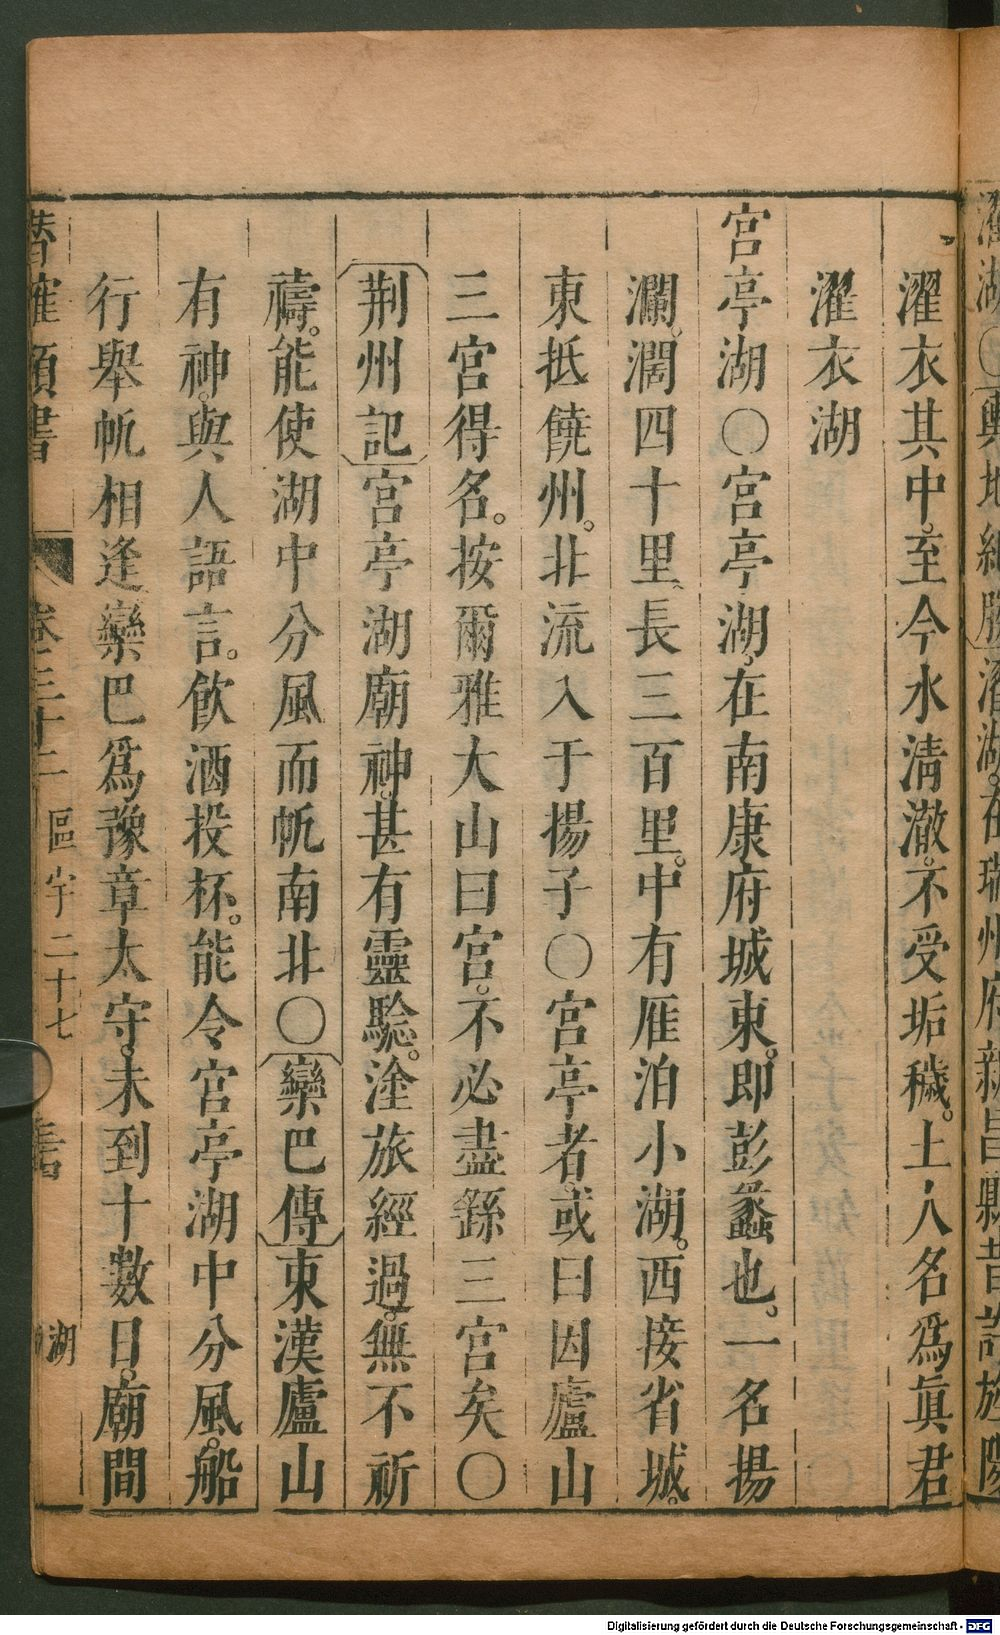 濯衣其中。至今水清澈。不受垢穢。土人名爲眞君
濯衣湖
宮亭湖〇宮亭湖。在南康府城東。即彭蠡也。一名揚
瀾。濶四十里。長三百里。中有雁泊小湖。西接省城。
東抵饒州。北流入于揚子〇宮亭者。或曰因廬山
三宮得名。按爾雅大山曰宮。不必盡繇三宮矣〇
荆州記宮亭湖廟神。甚有靈驗。塗旅經過。無不祈
禱。能使湖中分風而帆南北〇欒巴傳東漢廬山
有神。與人語言。飲酒投杯。能令宮亭湖中分風。船
行舉帆相逢欒巴爲豫章太守。未到十數日。廟間
潛確類書
卷三十二
區宇二十七
湖
Digitalisierung gefördert durch die Deutsche Forschungsgemeinschaft - DFG